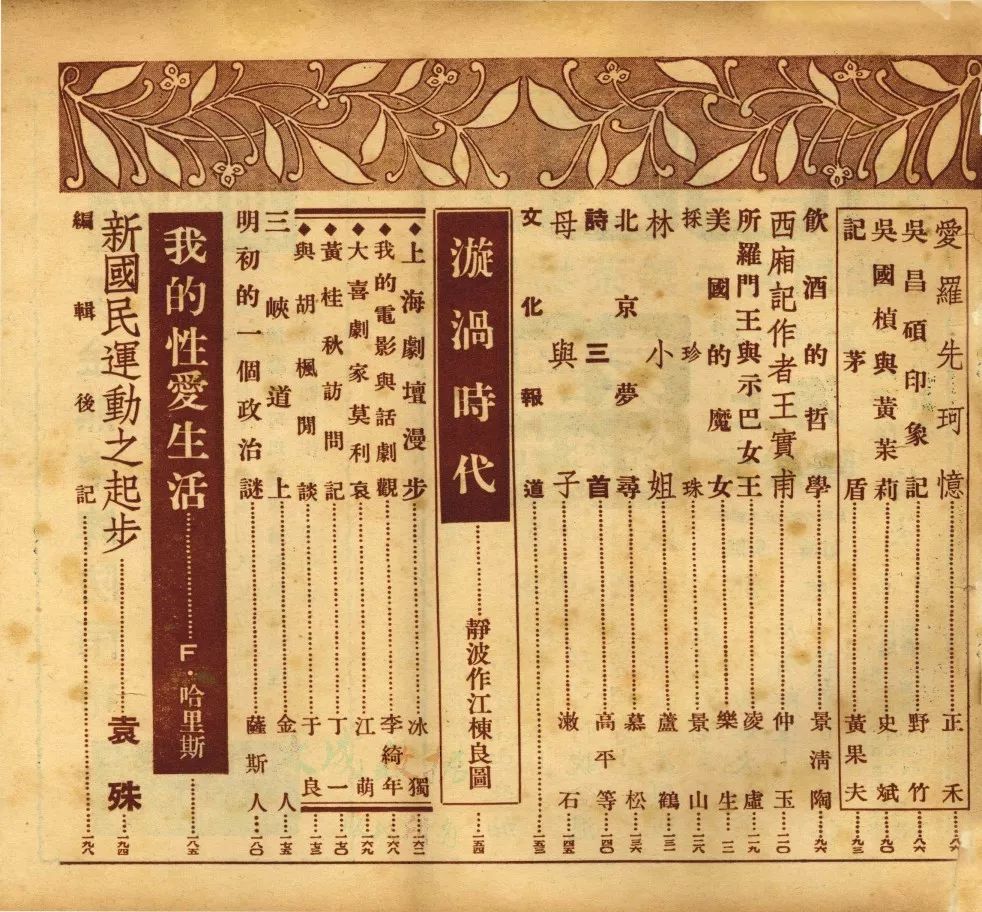 愛羅先珂憶 正禾
吳昌碩印象記 野竹 八六
吳國楨與黃茉莉 史斌 九〇
記茅盾 黃果夫 九三
飲酒的哲學 景清陶 九六
西廂記作者王實甫 仲玉
所羅門王與示巴女王 凌虛
美國的魔女 樂生
採珍珠 景山 一二八
林小姐 蘆鶴 一三二
北京夢尋 慕松 一三六
詩三首 高平等 一四〇
母與子 漱石 一四五
文化報道 一五三
漩渦時代 靜波作江棟良圖 一五四
◆上海劇壇漫步 冰獨 一六二
◆我的電影與話劇觀 李綺年 一六八
◆大喜劇家莫利哀 江萌 一六九
◆黃桂秋訪問記 丁一 一七〇
◆與胡楓閒談 于良 一七三
三峽道上 金人 一七五
明初的一個政治謎 薩斯人 一八〇
我的性愛生活 F·哈里斯 一八五
新國民運動之起步 袁殊 一九四
編輯後記 一九八